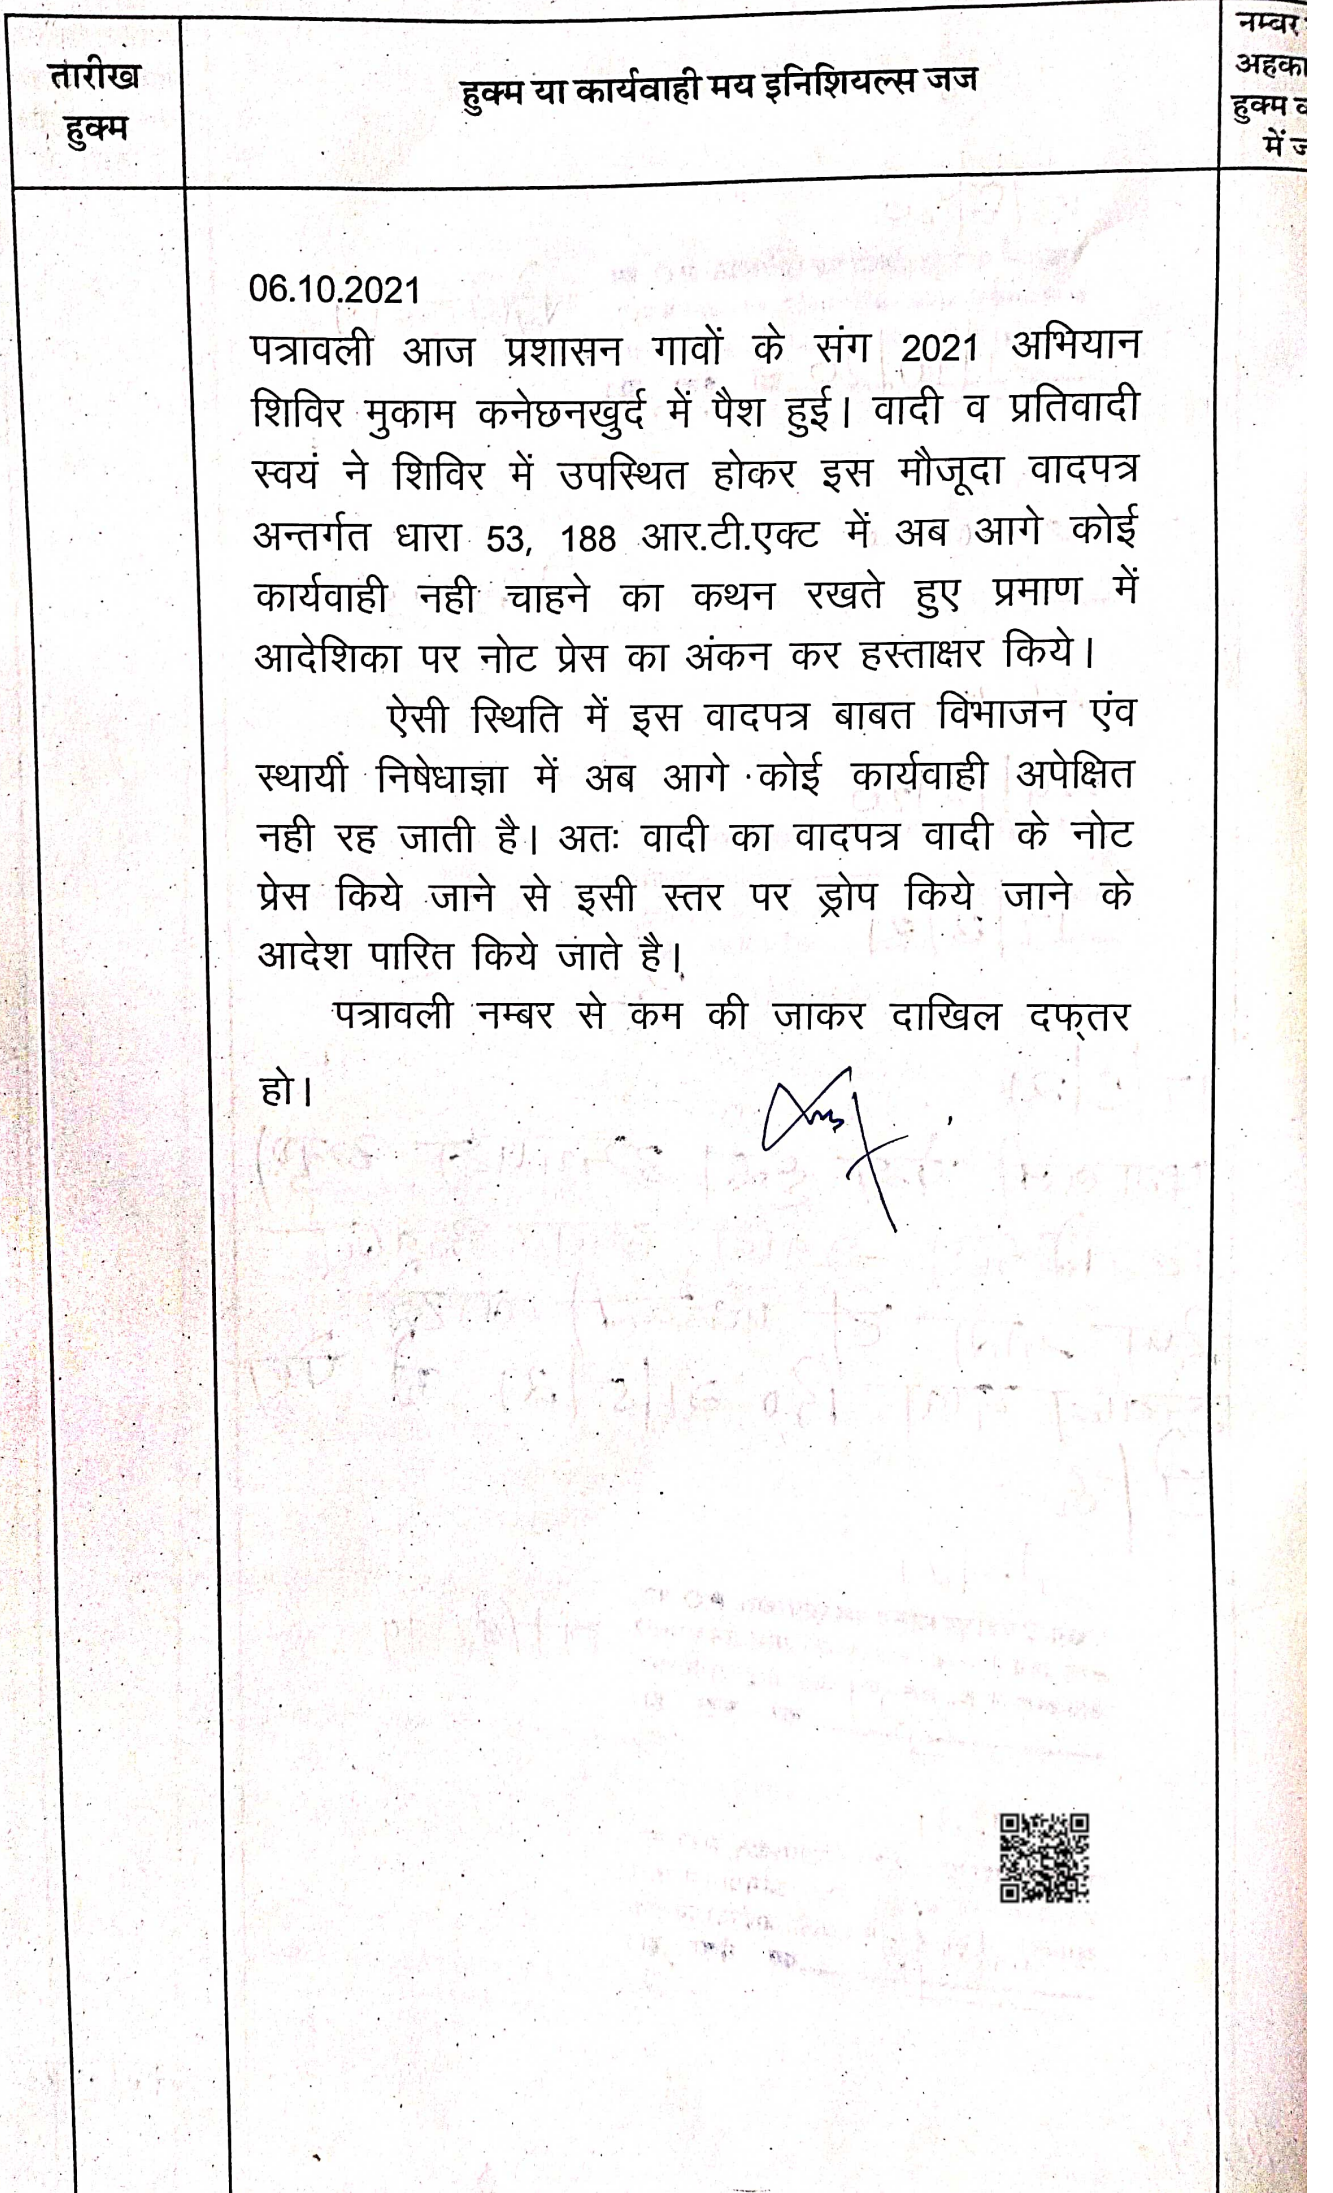 तारीख
हुक्म
हुक्म या कार्यवाही मय इनिशियल्स जज
नम्बर
अहका
हुक्म
में
06.10.2021
पत्रावली आज प्रशासन गावों के संग 2021 अभियान
शिविर मुकाम कनेछनखुर्द में पैश हुई। वादी व प्रतिवादी
स्वयं ने शिविर में उपस्थित होकर इस मौजूदा वादपत्र
अन्तर्गत धारा 53, 188 आर.टी.एक्ट में अब आगे कोई
कार्यवाही नही चाहने का कथन रखते हुए प्रमाण में
आदेशिका पर नोट प्रेस का अंकन कर हस्ताक्षर किये।
ऐसी स्थिति में इस वादपत्र बाबत विभाजन एंव
स्थायी निषेधाज्ञा में अब आगे कोई कार्यवाही अपेक्षित
नही रह जाती है। अतः वादी का वादपत्र वादी के नोट
प्रेस किये जाने से इसी स्तर पर ड्रोप किये जाने के
आदेश पारित किये जाते है।
पत्रावली नम्बर से कम की जाकर दाखिल दफ्तर
हो।